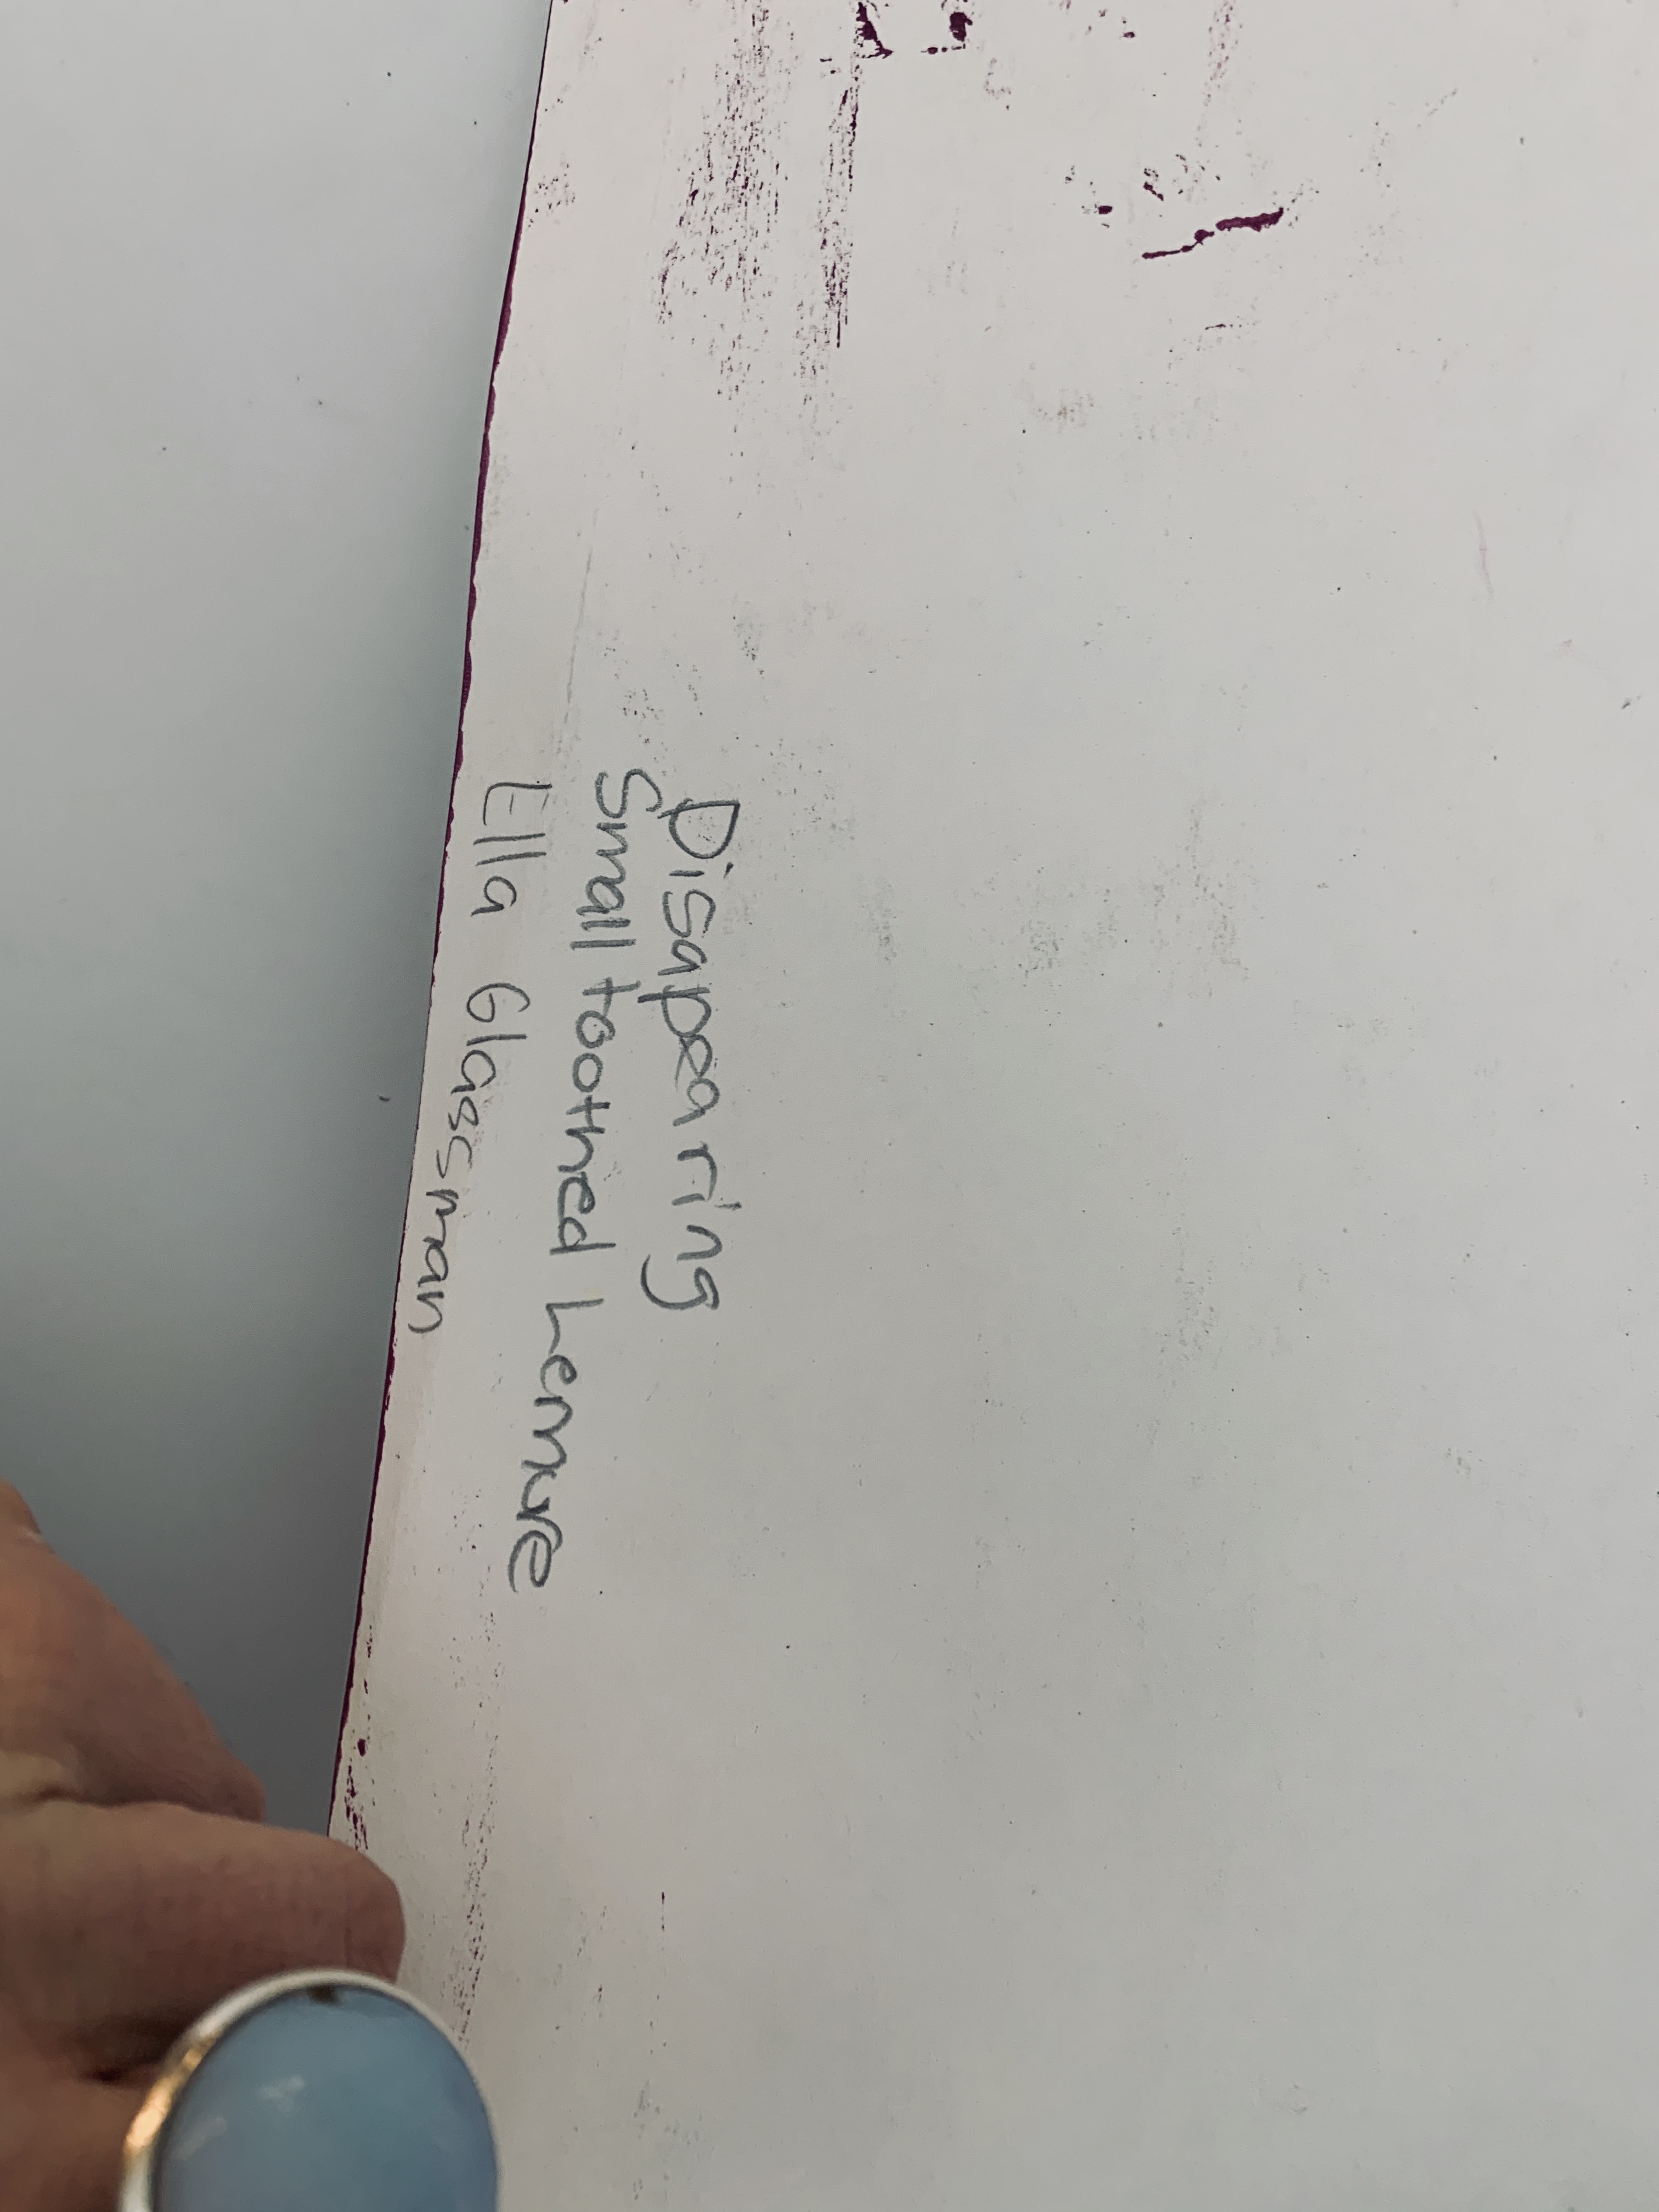 Disapearing
Small toothed Lemure
Ella Glassman